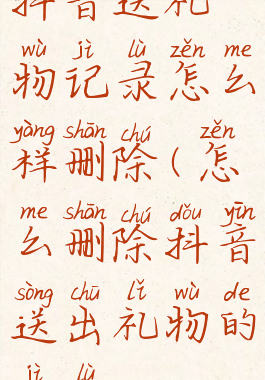 抖音送礼
wù jì lù zěn me
物记录怎么
yàng shān chú zěn
样删除(怎
me shān chú dǒu yīn
么删除抖音
sòng chū lǐ wù de
送出礼物的
jì lù